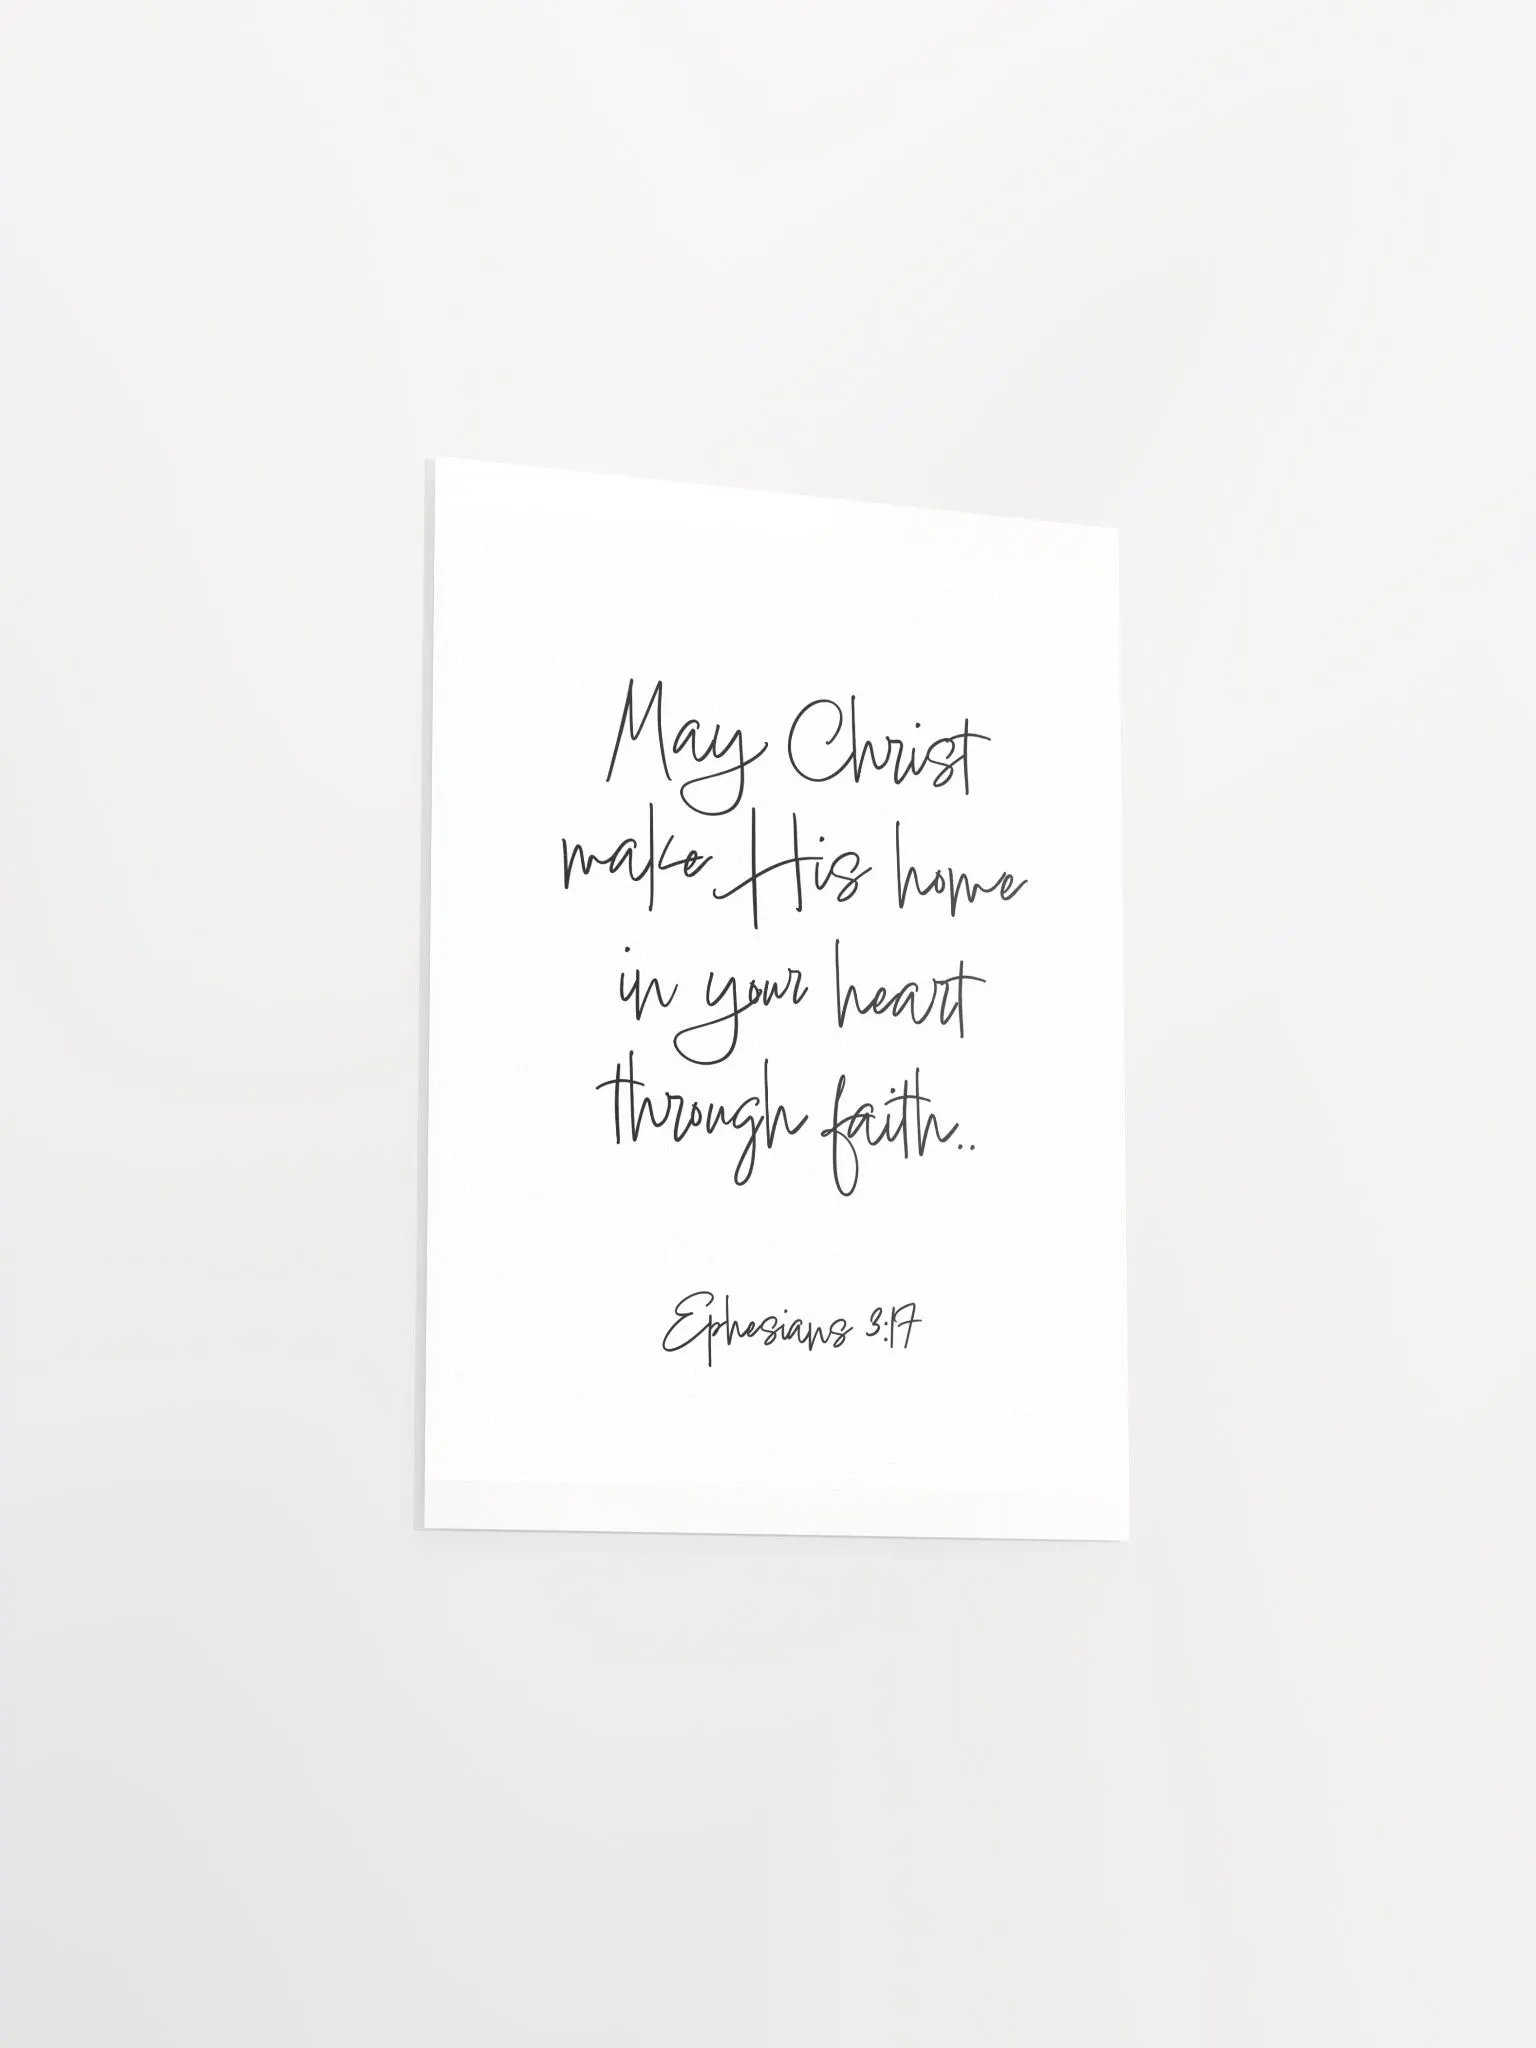 May Christ
make His home
in your heart
through faith..
Ephesians 3:17